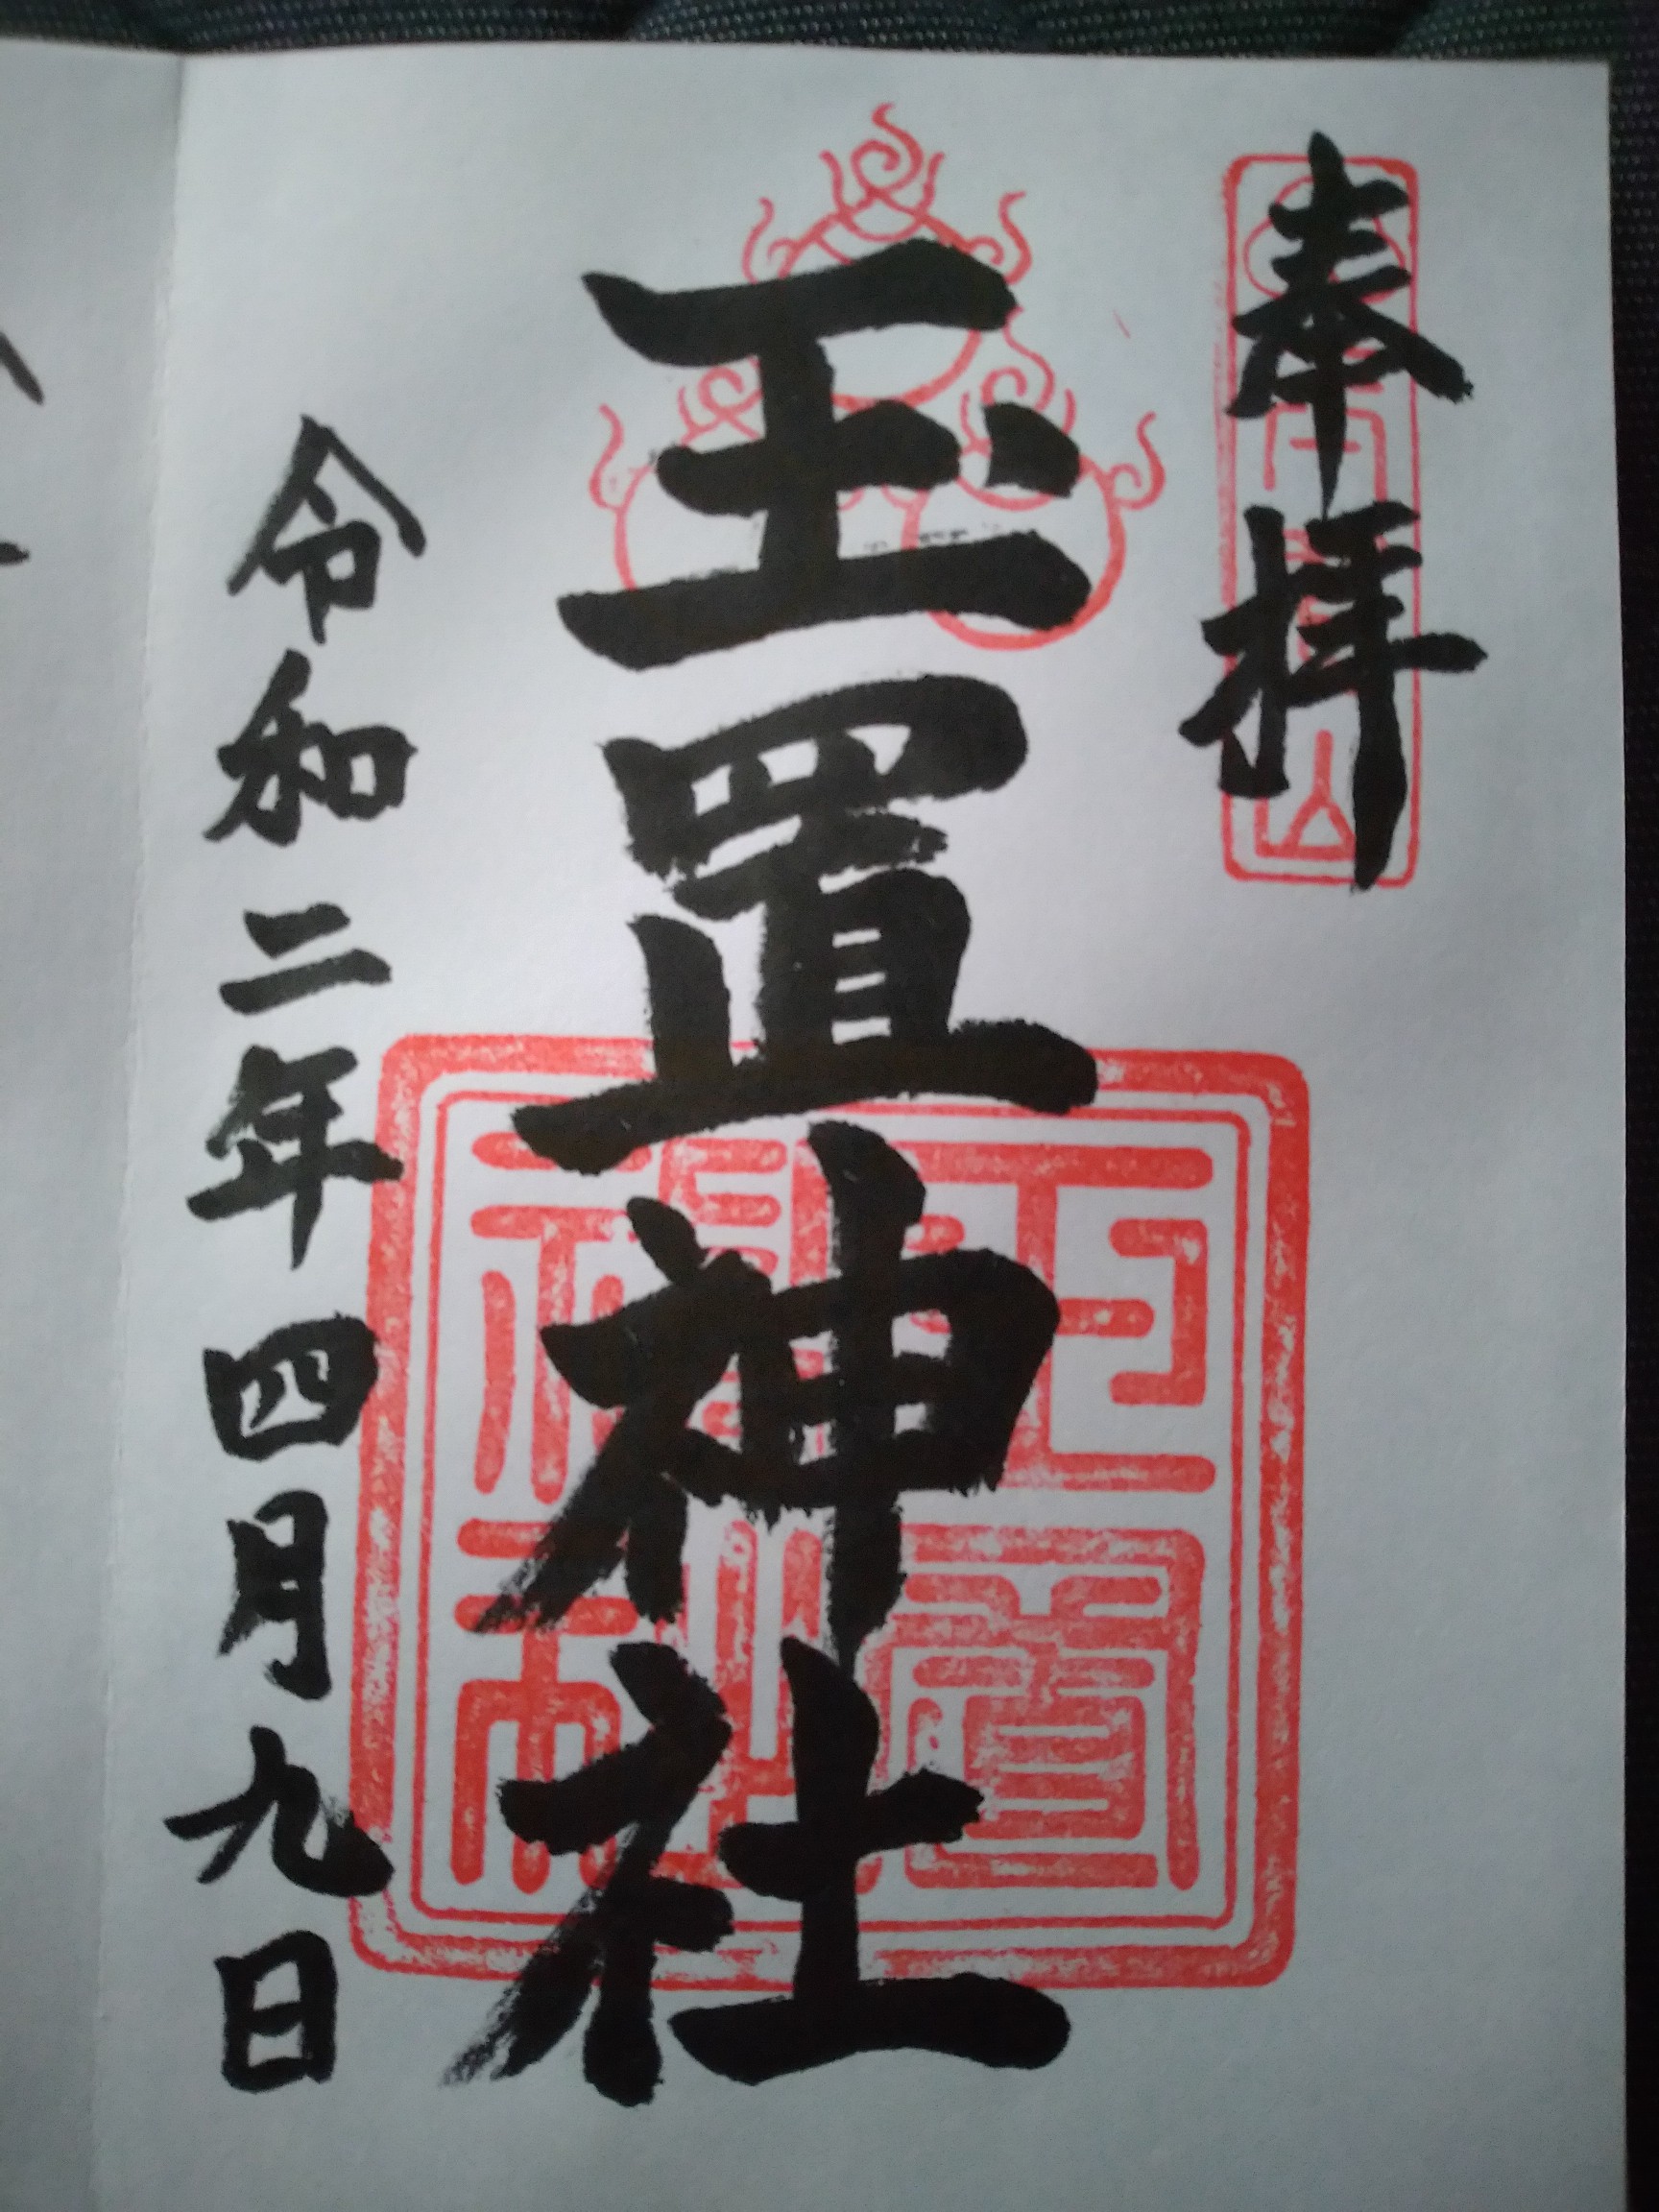 奉拝
玉置神社
玉置神社
令和二年四月九日